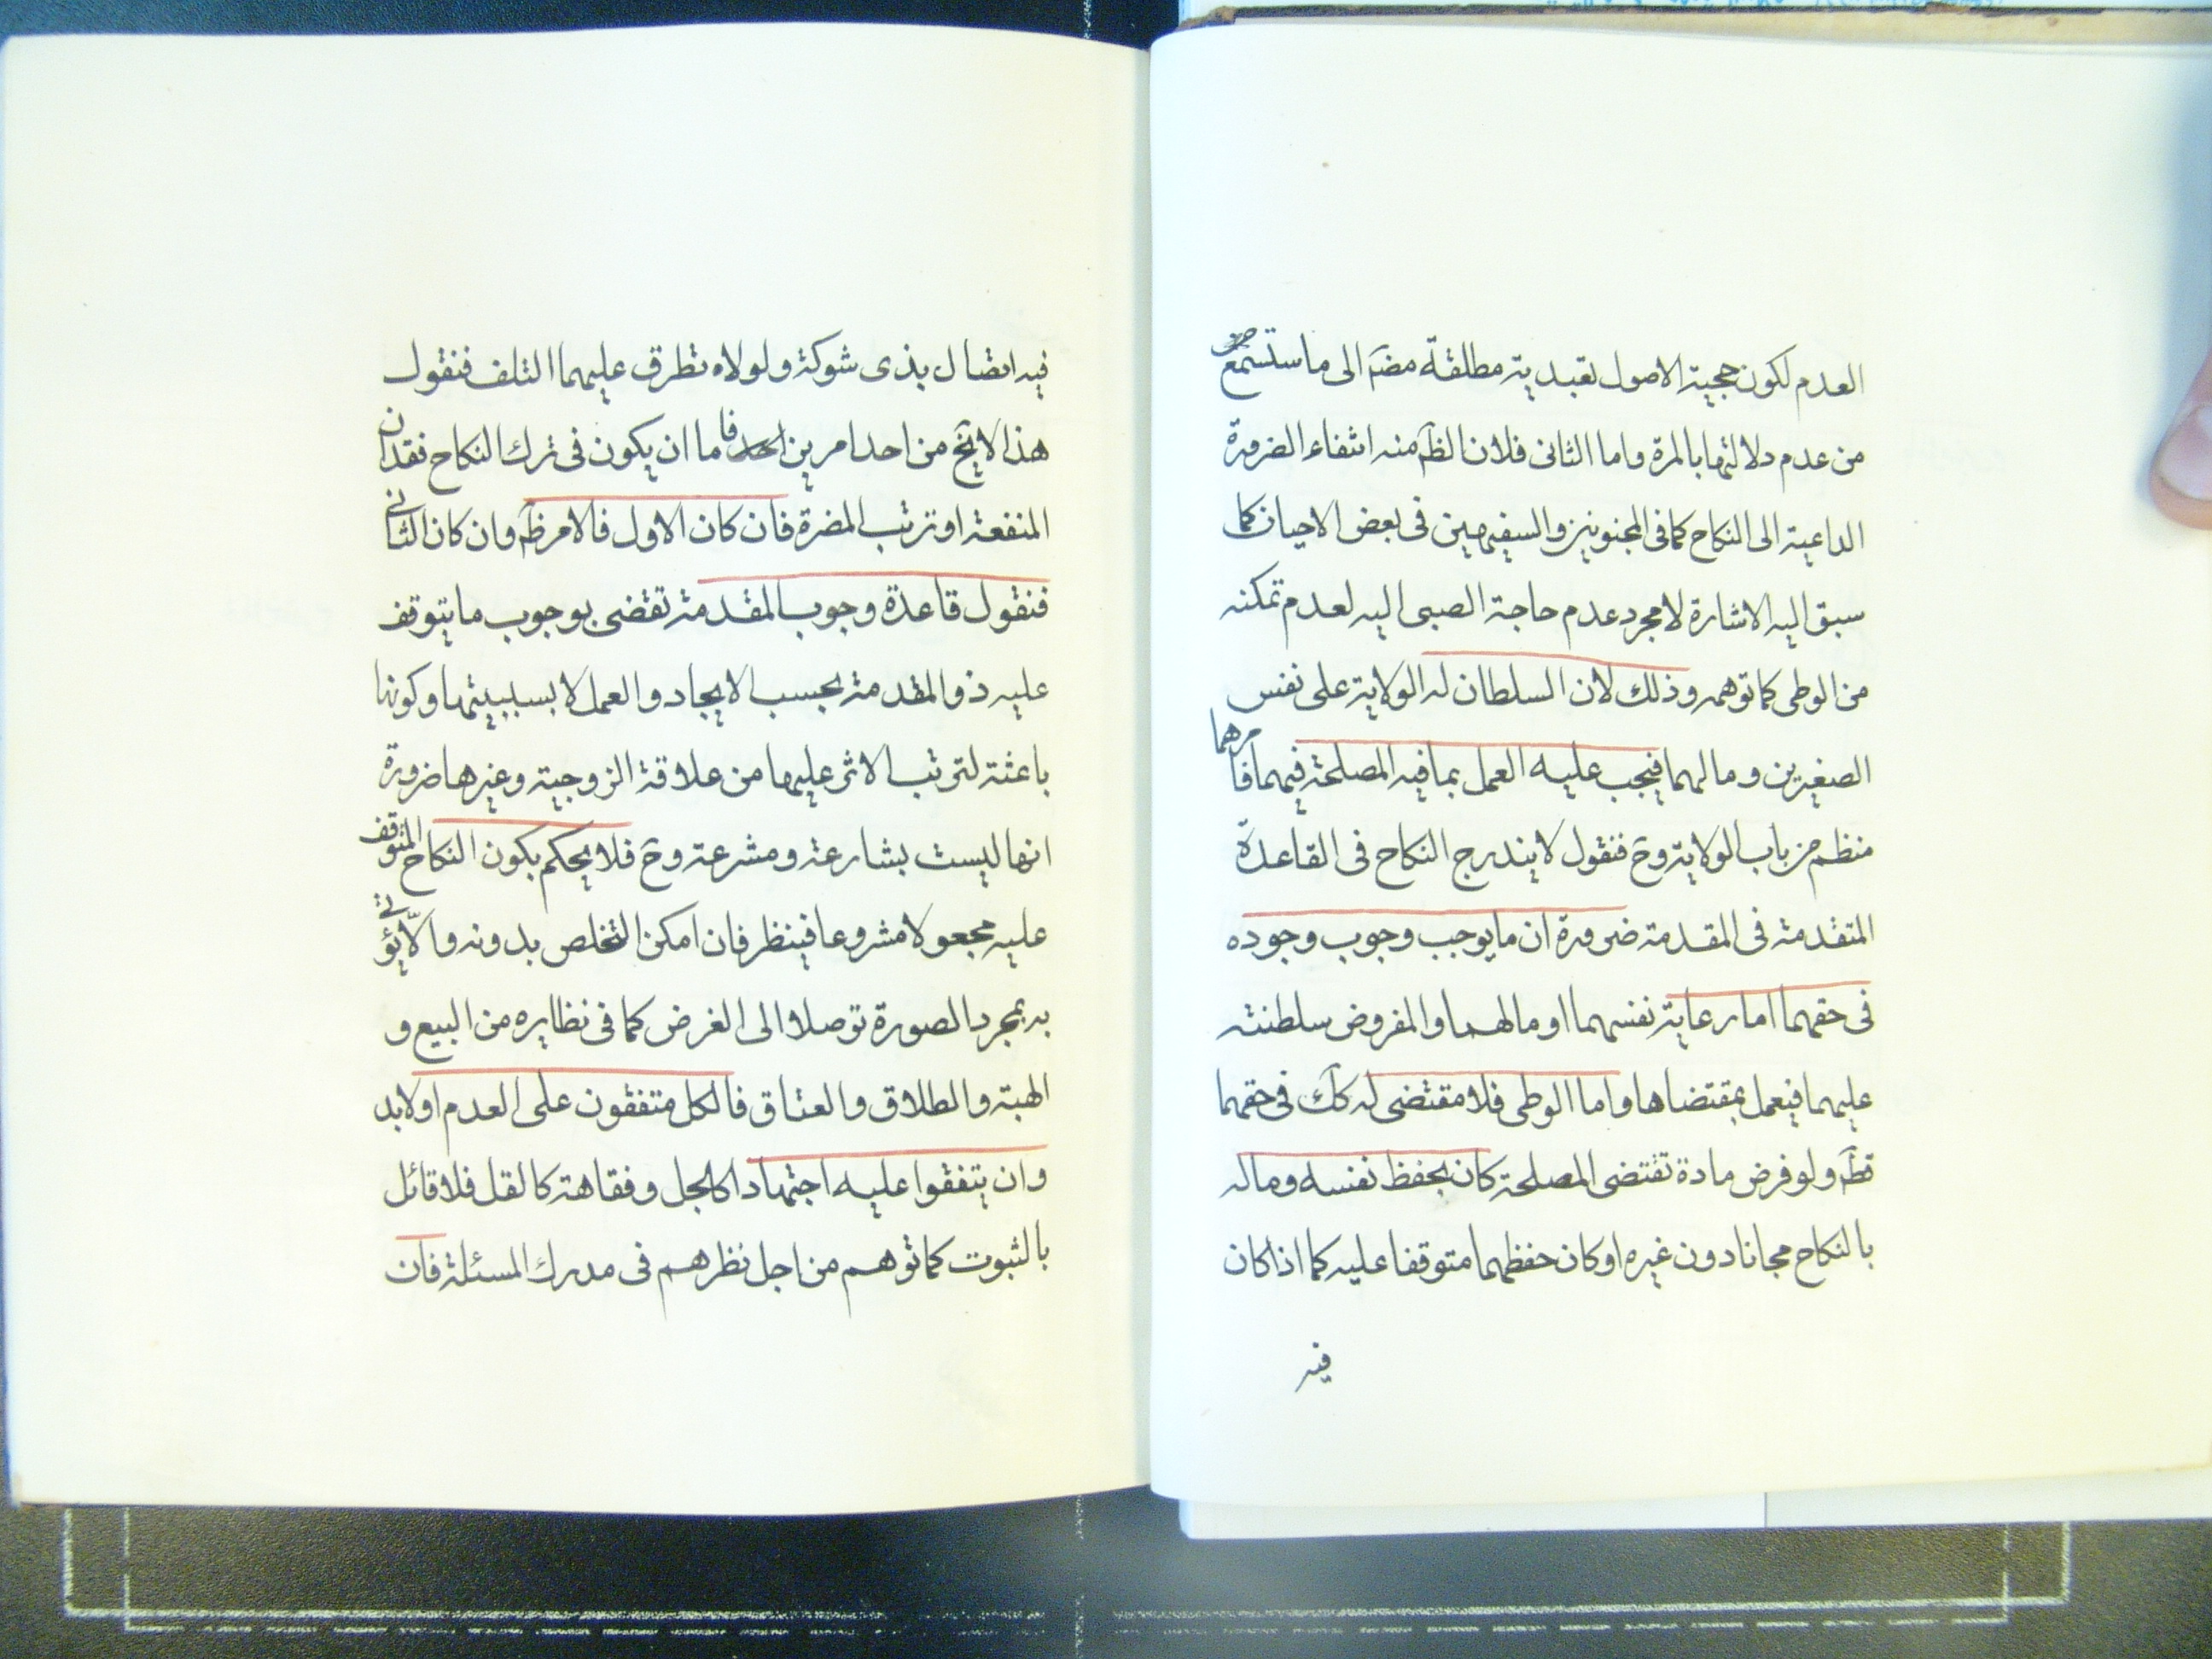 العدم لكون حجية الاصول تعبدية مطلقة مضم الى ما ستسمع
من عدم دلالتها بالمرة واما الثانى فلان الظم منه انتفاء الضرورة
الداعية الى النكاح كما فى المجنونين والسفيهين فى بعض الاحيان كما
سبق اليه الاشارة لا مجرد عدم حاجة الصبى اليه لعدم تمكنه
من الوطى كما توهمه وذلك لان السلطان له الولاية على نفس
الصغيرين ومالهما فيجب عليه العمل بما فيه المصلحة فيهما فامرهما
منظم من باب الولاية وح فنقول لا يندرج النكاح فى القاعدة
المتقدمة فى المقدمة ضرورة ان ما يوجب وجوب وجوده
فى حقهما اما رعاية نفسهما او مالهما والمفروض سلطنته
عليهما فيعمل بمقتضاها واما الوطى فلا مقتضى له كك فى حقهما
قطم ولو فرض مادة تقتضى المصلحة كان يحفظ نفسه وماله
بالنكاح مجانا دون غيره او كان حفظهما متوقفا عليه كما اذا كان
فيه
فيه اتصال بذى شوكة ولولاه تطرق عليهما التلف فنقول
هذا لا يخ من احد امرين فاما ان يكون فى ترك النكاح فقدان
المنفعة او ترتب المضرة فان كان الاول فالامر ظم وان كان الثانى
فنقول قاعدة وجوب المقدمة تقتضى بوجوب ما يتوقف
عليه ذو المقدمة بحسب الايجاد والعمل لا بسببيتها وكونها
باعثة لترتب الاثر عليها من علاقة الزوجية وغيرها ضرورة
انها ليست بشارعة ومشرعة وح فلا يحكم بكون النكاح المتوقف
عليه مجعولا مشروعا فينظر فان امكن التخلص بدونه والا يؤتى
به بمجرد الصورة توصلا الى الغرض كما فى نظايره من البيع و
الهبة والطلاق والعتاق فالكل متفقون على العدم اولا بد
وان يتفقوا عليه اجتهادا كالجل وفقاهة كالقل فلا قائل
بالثبوت كما توهم من اجل نظرهم فى مدرك المسئلة فان